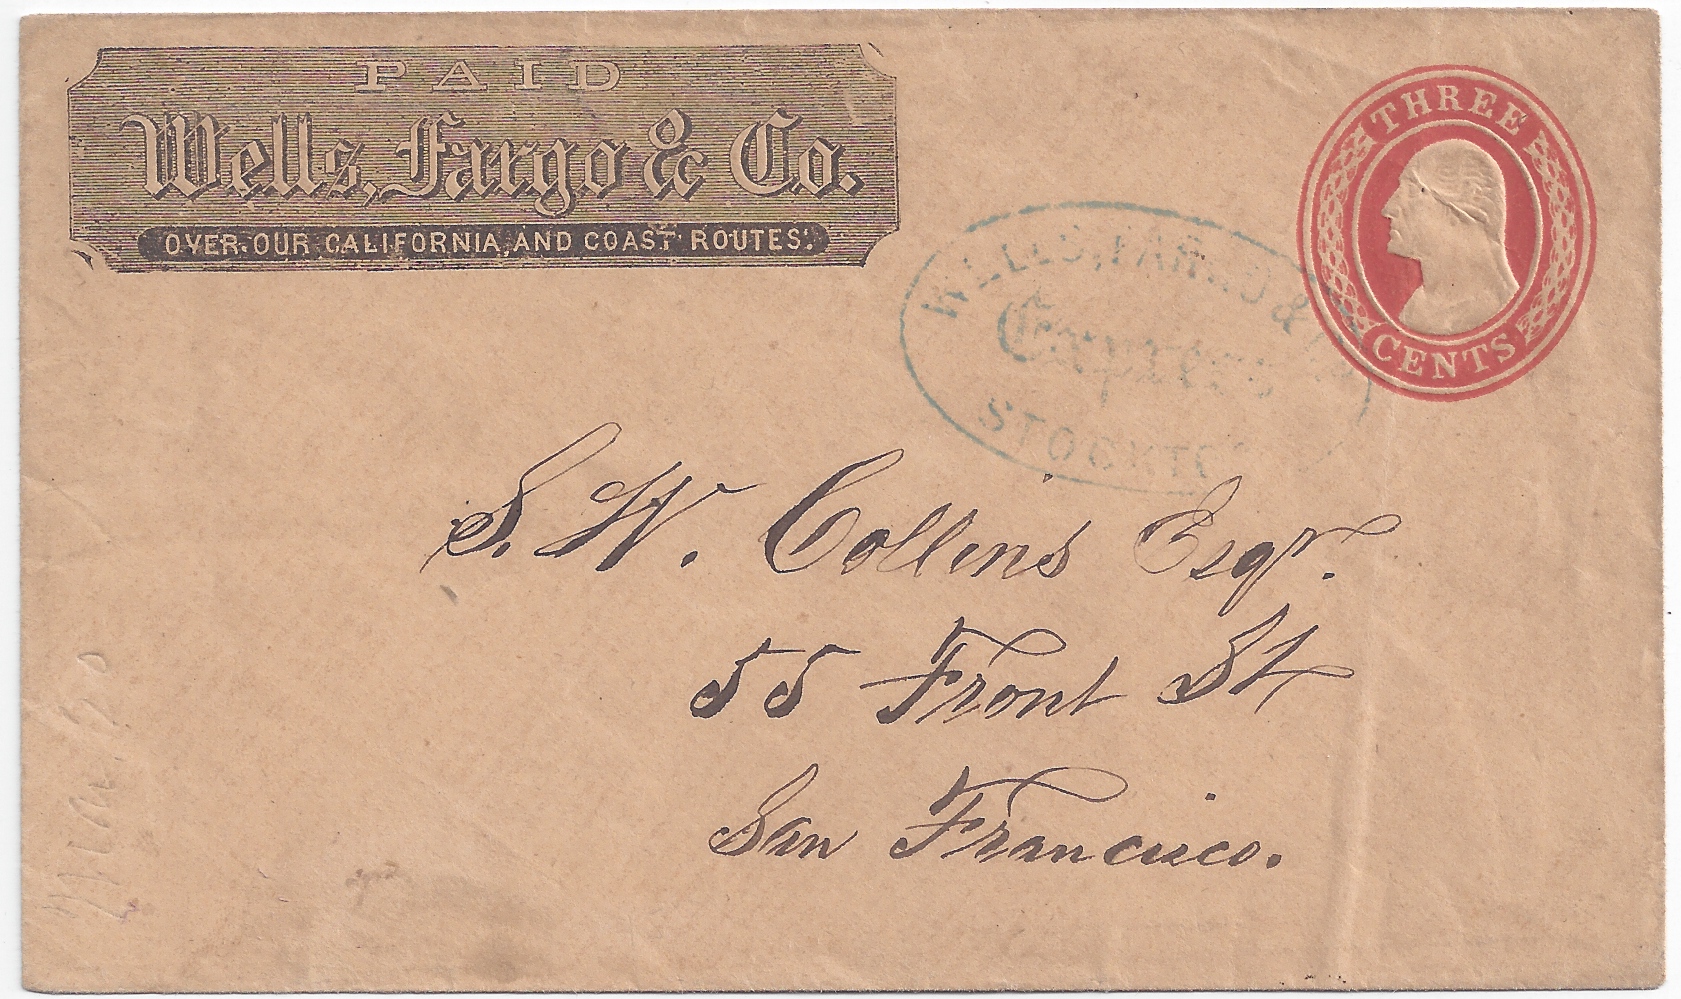 PAID
Wells, Fargo & Co.
OVER OUR CALIFORNIA AND COAST ROUTES.
THREE
CENTS
WELLS, FARGO &
Express
STOCKTON
S. W. Collins Esqr.
55 Front St
San Francisco.